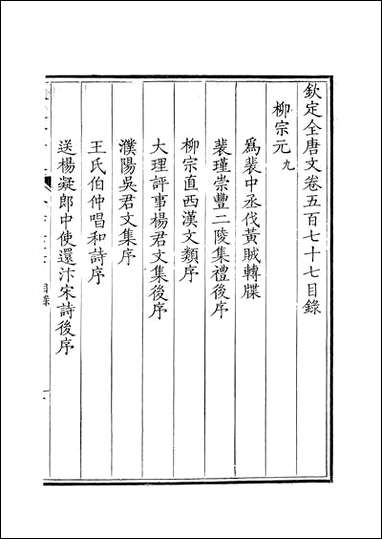 欽定全唐文卷五百七十七目錄
柳宗元九
爲裴中丞伐黃賊轉牒
裴瑾崇豐二陵集禮後序
柳宗直西漢文類序
大理評事楊君文集後序
濮陽吳君文集序
王氏伯仲唱和詩序
送楊凝郎中使還汴宋詩後序
目錄